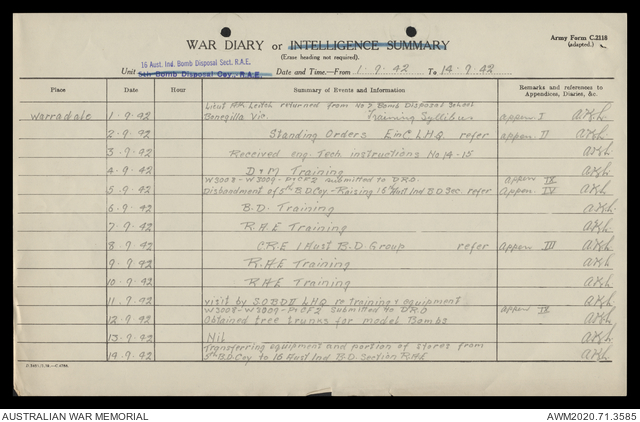 WAR DIARY or INTELLIGENCE SUMMARY
Army Form C.2118
(adapted.)
(Erase heading not required).
16 Aust. Ind. Bomb Disposal Sect. R.A.E.
Unit 5th Bomb Disposal Coy., R.A.E. Date and Time.—From 1.9.42 To 14.9.42
Place Date Hour Summary of Events and Information Remarks and references to Appendices, Diaries, &c.
Lieut Leitch returned from No 2 Bomb Disposal School
Warradale 1.9.42 Bonegilla Vic. Training Syllibus appen I AKL
2.9.42 Standing Orders EinC LHQ refer appen II AKL
3.9.42 Received eng. Tech instructions No 14-15 AKL
4.9.42 D&M Training AKL
W3008-W3009-Pt CF2 submitted to D.R.O. appen IX
5.9.42 Disbandment of 5th B.D. Coy - Raising 16th Aust Ind B.D Sec. refer appen IV AKL
6.9.42 B.D. Training AKL
7.9.42 R.A.E Training AKL
8.9.42 C.R.E 1 Aust B.D. Group refer Appen III AKL
9.9.42 R.A.E Training AKL
10.9.42 RAE Training AKL
11.9.42 visit by S.O.B.D II LHQ re training & equipment AKL
W3008-W3009-Pt CF2 Submitted to D.R.O appen IX
12.9.42 Obtained tree trunks for model Bombs AKL
13.9.42 Nil AKL
Transferring equipment and portion of stores from
14.9.42 5th B.D. Coy to 16 Aust Ind B.D. Section R.A.E AKL
AUSTRALIAN WAR MEMORIAL
AWM2020.71.3585